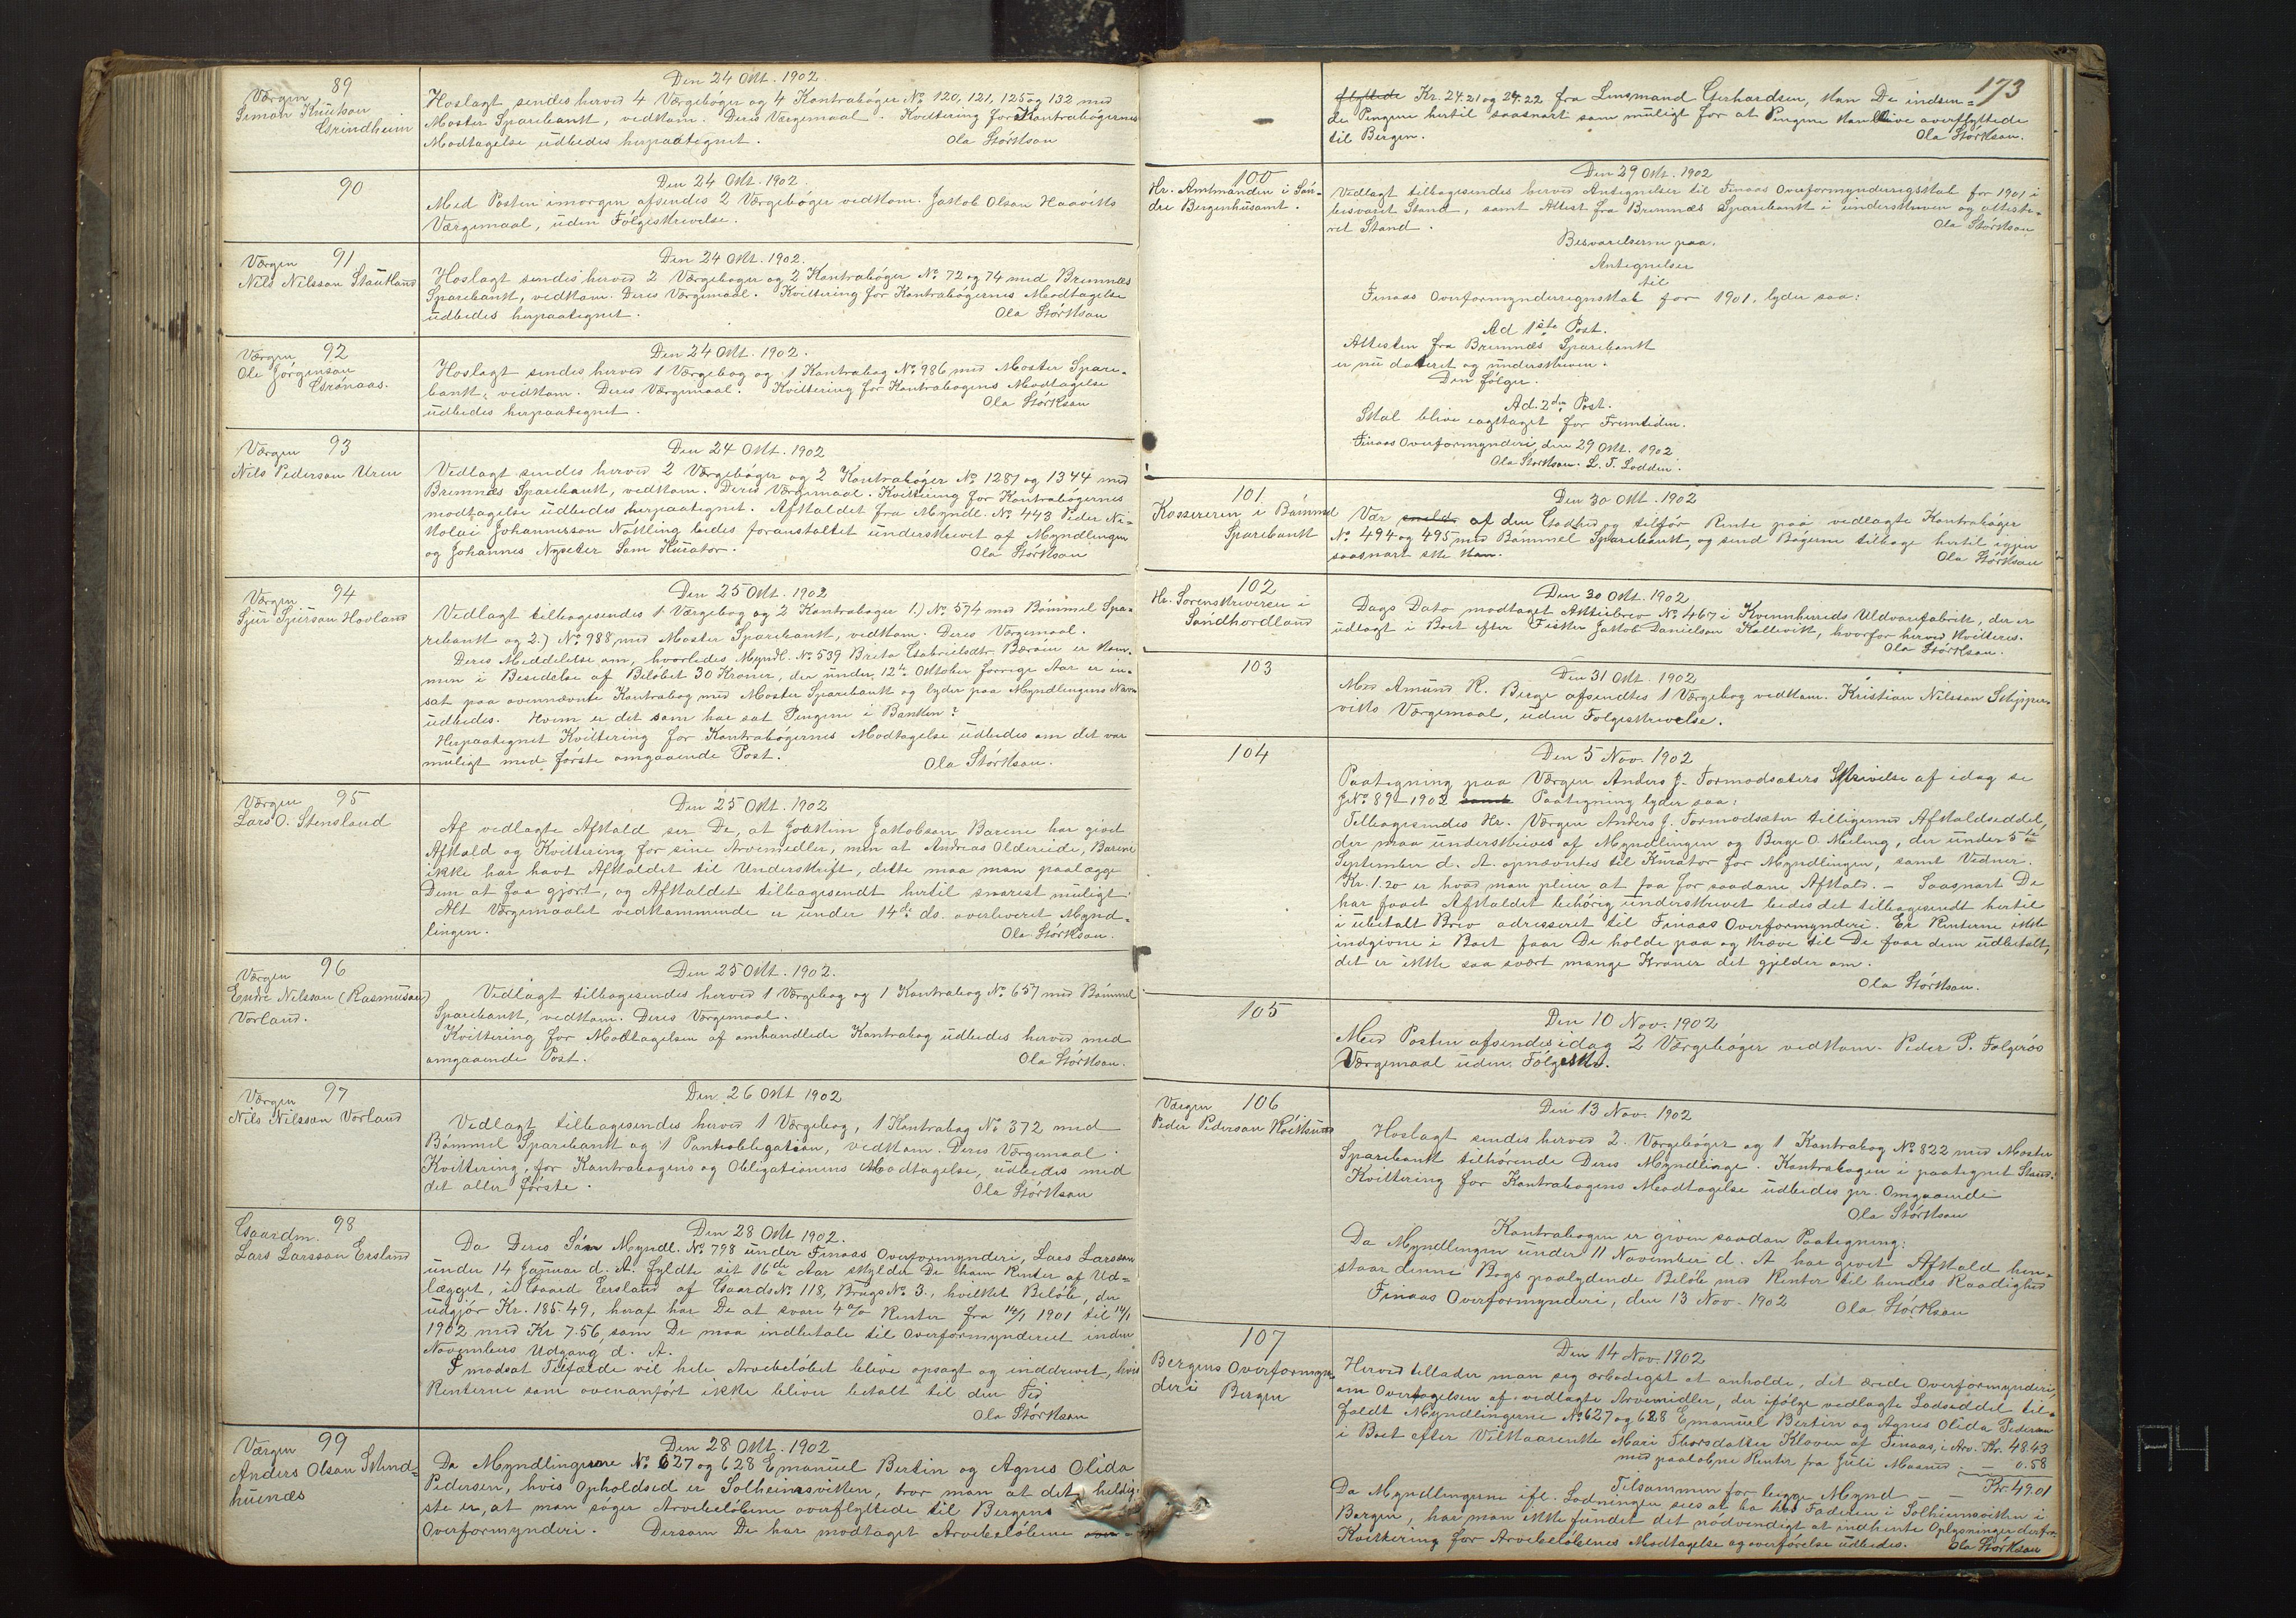 89
Værgen
Simon Knutson
Grindheim
Den 24 Okt. 1902.
Hoslagt sendes herved 4 Værgebøger og 4 Kontrabøger No 120, 121, 125 og 132 med
Moster Sparebank, vedkom. Deres Værgemaal. Kvittering for Kontrabøgernes
Modtagelse udbedes herpaategnet.
Ola Størkson
90
Den 24 Okt. 1902.
Med Posten imorgen afsendes 2 Værgebøger vedkom. Jakob Olson Haaviks
Værgemaal, uden Følgeskrivelse.
91
Værgen
Nils Nilsson Stautland
Den 24 Okt. 1902.
Hoslagt sendes herved 2 Værgebøger og 2 Kontrabøger No 72 og 74 med Bremnes
Sparebank, vedkom. Deres Værgemaal. Kvittering for Kontrabøgernes Modtagelse
udbedes herpaategnet.
Ola Størkson
92
Værgen
Ole Jørgenson
Grønaas.
Den 24 Okt. 1902.
Hoslagt sendes herved 1 Værgebog og 1 Kontrabog No 986 med Moster Spare-
bank, vedkom. Deres Værgemaal. Kvittering for Kontrabogens Modtagelse
udbedes herpaategnet.
Ola Størkson
93
Værgen
Nils Pederson Uren
Den 24 Okt. 1902
Vedlagt sendes herved 2 Værgebøger og 2 Kontrabøger No 1287 og 1344 med
Bremnes Sparebank, vedkom. Deres Værgemaal. Kvittering for Kontrabøgernes
modtagelse udbedes herpaategnet. Afkaldet fra Myndl. No 443 Peder Ni-
kolai Johannesson Nøtling bedes foranstaltet underskrevet af Myndlingen
og Johannes Nyseter som Kurator.
Ola Størkson
94
Værgen
Sjur Sjurson Hovland
Den 25 Okt. 1902
Vedlagt tilbagesendes 1 Værgebog og 2 Kontrabøger 1.) No 574 med Bømmel Spa-
rebank og 2.) No 988 med Moster Sparebank, vedkom. Deres Værgemaal.
Deres Meddelelse om, hvorledes Myndl. No 539 Brita Gabrielsdtr. Bærøin er kom-
men i Besidelse af Beløbet 30 Kroner, der under 12te Oktober forrige Aar er in-
sat paa ovennævnte Kontrabog med Moster Sparebank og lyder paa Myndlingens Navn
udbedes. Hvem er det som har sat Pengene i Banken?
Herpaategnet Kvittering for Kontrabøgernes Modtagelse udbedes om det var
muligt med første omgaaende Post.
Ola Størkson.
95
Værgen
Lars O. Stensland
Den 25 Okt. 1902
Af vedlagte Afkald ser De, at Joakim Jakobson Barene har givet
Afkald og Kvittering for sine Arvemidler, men at Andreas Oldereide, Barene
ikke har havt Afkaldet til Underskrift, dette maa man paalægge
Dem at faa gjort, og Afkaldet tilbagesendt hertil snarest muligt.
Alt Værgemaalet vedkommende er under 14de ds. overleveret Mynd-
lingen.
Ola Størkson.
96
Værgen
Endre Nilsson (Rasmuson)
Vorland.
Den 25 Okt. 1902.
Vedlagt tilbagesendes herved 1 Værgebog og 1 Kontrabog No 657 med Bømmel
Sparebank, vedkom. Deres Værgemaal.
Kvittering for Modtagelsen af omhandlede Kontrabog udbedes herved med
omgaaende Post.
Ola Størkson.
97
Værgen
Nils Nilsson Vorland
Den 26 Okt 1902
Vedlagt tilbagesendes herved 1 Værgebog, 1 Kontrabog No 372 med
Bømmel Sparebank og 1 Panteobligation, vedkom. Deres Værgemaal.
Kvittering, for Kontrabogens og Obligationens Modtagelse, udbedes med
det aller første.
Ola Størkson
98
Gaardm.
Lars Larsson Ersland
Den 28 Okt 1902.
Da Deres Søn Myndl. No 798 under Finaas Overformynderi, Lars Larsson
under 14 Januar d. A. fyldte sit 16de Aar skylder De ham Renter af Ud-
lægget, i Gaard Ersland af Gaards No 118, Brugs No 3., hvilket Beløb, der
udgjør Kr. 185.49, heraf har De at svare 4 % Renter fra 14/1 1901 til 14/1
1902 med Kr 7.56, som De maa indbetale til Overformynderiet inden
Novembers Udgang d. A.
I modsat Tilfælde vil hele Arvebeløbet blive opsagt og inddrevet, hvis
Renterne som ovenanført ikke bliver betalt til den Tid
Ola Størkson
99
Værgen
Anders Olson Stend-
huenæs
Den 28 Okt. 1902
Da Myndlingerne No 627 og 628 Emanuel Bertin og Agnes Olida
Pedersen, hvis Opholdsed er Solheimsviken, tror man at det heldig-
ste er, at man søger Arvebeløbene overflyttede til Bergens
Overformynderi. Dersom De har modtaget Arvebeløbene over-
173
flyttede Kr. 24.21 og 24.22 fra Lensmand Gerhardsen, kan De indsen-
de Pengene hertil saasnart som muligt for at Pengene kan blive overflyttede
til Bergen.
Ola Størkson.
100
Hr. Amtmanden i Søn-
dre Bergenhusamt.
Den 29 Okt. 1902
Vedlagt tilbagesendes herved Antegnelser til Finaas Overformynderregskab for 1901 i
besvaret Stand, samt Attest fra Bremnæs Sparebank i underskreven og atteste-
ret Stand.
Ola Størkson
Besvarelserne paa.
Antegnelser
til
Finaas Overformynderregnskab for 1901, lyder saa:
Ad 1ste Post.
Attesten fra Bremnæs Sparebank
er nu dateret og underskreven.
Den følger.
Ad. 2den Post.
Skal blive iagttaget for Fremtiden.
Finaas Overformynderi, den 29 Okt. 1902
Ola Størkson. L. T. Lodden.
101
Kassereren i Bømmel
Sparebank
Den 30 Okt. 1902
Vær snild af den Godhed og tilfør Rente paa vedlagte Kontrabøger
No 494 og 495 med Bømmel Sparebank, og send Bøgerne tilbage hertil igjen
saasnart ske kan.
Ola Størkson
102
Hr. Sorenskriveren i
Søndhordland
Den 30 Okt. 1902
Dags Dato modtaget Aktiebrev No 467 i Kvinnherreds Uldvarefabrik, der er
udlagt i Boet efter Fisker Jakob Danielson Kallevik, hvorfor herved kvitteres.
Ola Størkson.
103
Den 31 Okt. 1902
Med Amund R. Berge afsendtes 1 Værgebog vedkom. Kristian Nilsson Skipper-
viks Værgemaal, uden Følgeskrivelse.
104
Den 5 Nov. 1902
Paategning paa Værgen Anders J. Tormodsæters Skrivelse af idag se
J No 89-1902 samt Paategning lyder saa:
Tilbagesendes Hr. Værgen Anders J. Tormodsæter tilligemed Afkaldseddel,
der maa underskrives af Myndlingen og Berge O. Meling, der under 5te
September d. A. opnævntes til Kurator for Myndlingen, samt Vedner.
Kr. 1.20 er hvad man pleier at faa for saadane Afkald. – Saasnart De
har faaet Afkaldet behørig underskrevet bedes det tilbagesendt hertil
i ubetalt Brev adresseret til Finaas Overformynderi. Er Renterne ikke
indgivne i Boet faar De holde paa og kræve til De faar dem udbetalt,
det er ikke saa svært mange Kroner det gjelder om.
Ola Størkson.
105
Den 10 Nov. 1902
Med Posten afsendes idag 2 Værgebøger vedkom. Peder P. Folgerøs
Værgemaal uden Følgeskr.
106
Værgen
Peder Pederson Røiksund
Den 13 Nov. 1902
Hoslagt sendes herved 2. Værgebøger og 1 Kontrabog No 822 med Moster
Sparebank tilhørende Deres Myndlinge. Kontrabogen i paategnet Stand.
Kvittering for Kontrabogens Modtagelse udbedes pr. Omgaaende
Ola Størkson
Kontrabogen er given saadan Paategning:
Da Myndlingen under 11 November d. A har givet Afkald hen-
staar denne Bogs paalydende Beløb med Renter til hendes Raadighed
Finaas Overformynderi, den 13 Nov. 1902
Ola Størkson
107
Bergens Overformyn-
deri
Bergen
Den 14 Nov. 1902
Herved tillader man sig ærbødigst at anholde, det ærede Overformynderi,
om Overtagelsen af vedlagte Arvemidler, der ifølge vedlagte Lodseddel til-
faldt Myndlingerne No 627 og 628 Emanuel Bertin og Agnes Olida Pedersen
i Boet efter Vilkaarenke Mari Thorsdatter Kloven af Finaas, i Arv. Kr. 48.43
med paaløbne Renter fra Juli Maaned – 0.58
Tilsammen for begge Mynd — Kr. 49.01
Da Myndlingerne ifl. Lodningen sees at ha hos Faderen i Solheimsviken i
Bergen, har man ikke fundet det nødvendigt at indhente Oplysninger derfor.
Kvittering for Arvebeløbenes Modtagelse og overførelse udbedes.
Ola Størkson